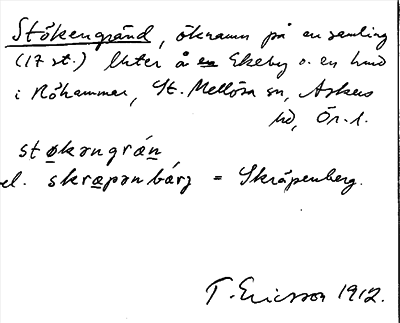 Stökengränd, öknamn på en samling
(17 st.) hus å Ekeby o. en hmd
i Nöhammar, St. Mellösa sn, Askers
hd, Ör. l.
støkəngrán
el. skrapənbárj = Skråpenberg.
T. Ericsson 1912.